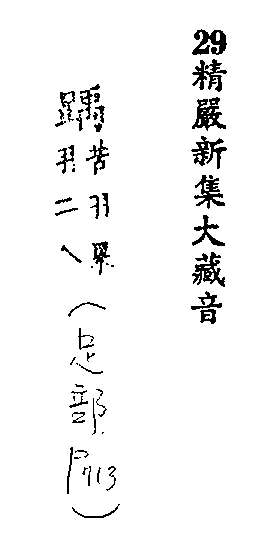 29精嚴新集大藏音
踽
苦羽
羽二
(足部
P713)